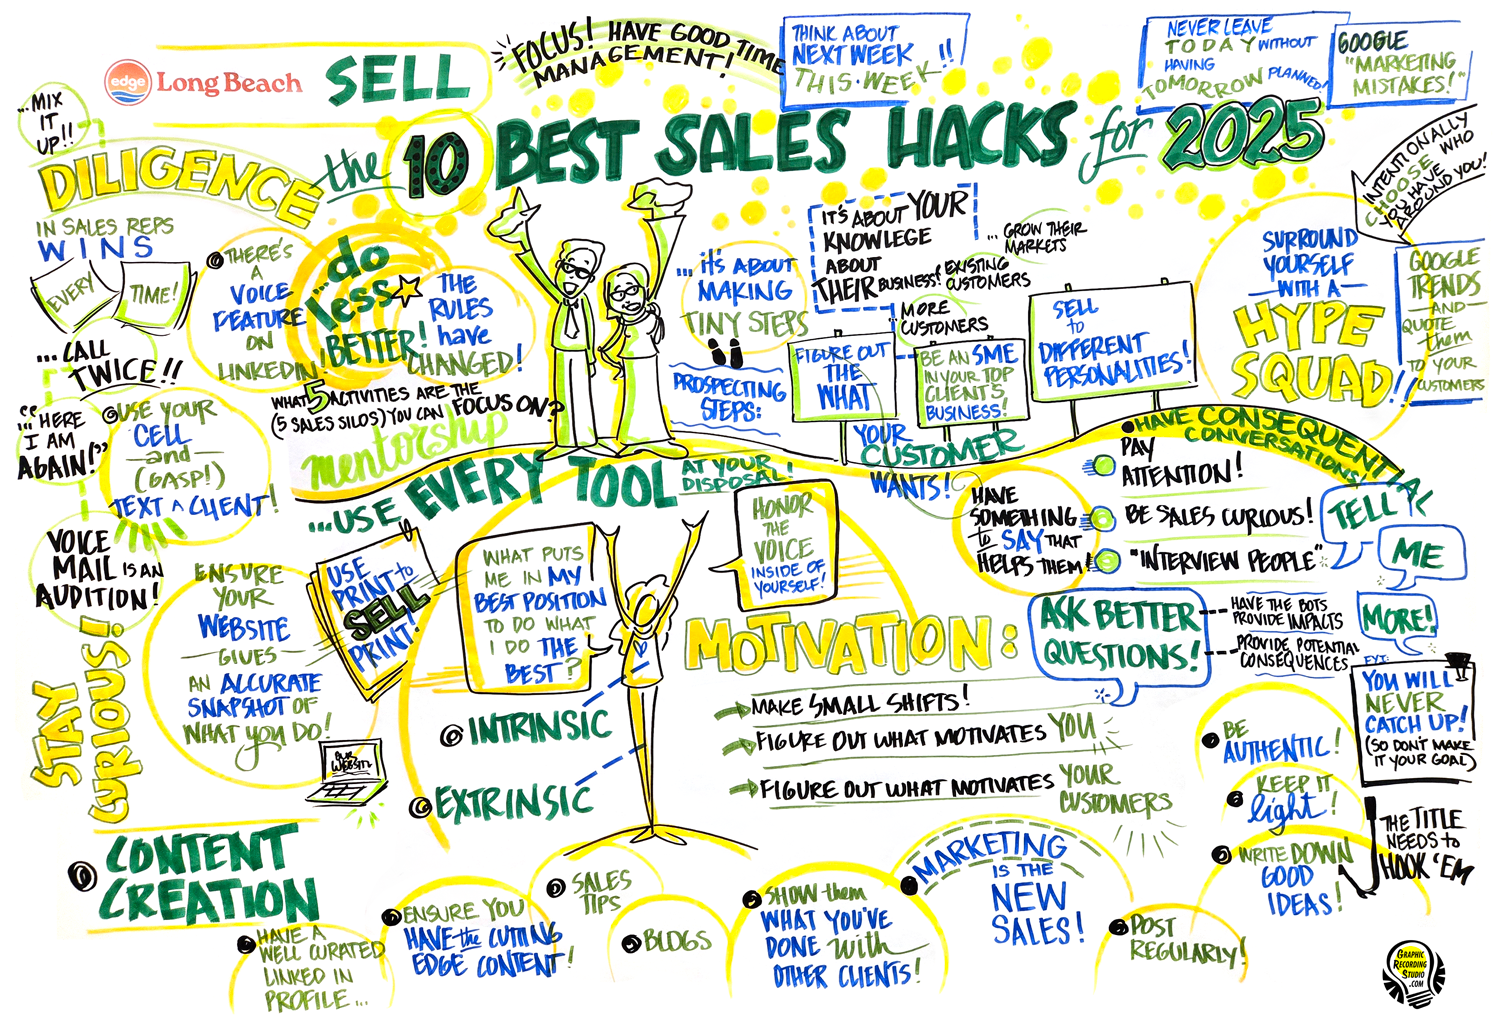 edge
Long Beach
SELL
the 10 BEST SALES HACKS for 2025
FOCUS! HAVE GOOD TIME
MANAGEMENT!
THINK ABOUT
NEXT WEEK
THIS·WEEK!!
NEVER LEAVE
TODAY WITHOUT
HAVING
TOMORROW PLANNED!
GOOGLE
"MARKETING
MISTAKES!"
...MIX
IT
UP!!
DILIGENCE
IN SALES REPS
WINS
EVERY
TIME!
...CALL
TWICE!!
"...HERE
I AM
AGAIN!"
VOICE
MAIL IS AN
AUDITION!
THERE'S
A
VOICE
FEATURE
ON
LINKEDIN!
USE YOUR
CELL
and
(GASP!)
TEXT A CLIENT!
...do
less
BETTER!
THE
RULES
have
CHANGED!
WHAT 5 ACTIVITIES ARE THE
(5 SALES SILOS) YOU CAN FOCUS ON?
mentorship
...it's ABOUT
MAKING
TINY STEPS
PROSPECTING
STEPS:
IT'S ABOUT YOUR
KNOWLEGE
ABOUT
THEIR BUSINESS!
... GROW THEIR
MARKETS
EXISTING
CUSTOMERS
MORE
CUSTOMERS
FIGURE OUT
THE
WHAT
YOUR
CUSTOMER
WANTS!
BE AN SME
IN YOUR TOP
CLIENT'S
BUSINESS!
SELL
to
DIFFERENT
PERSONALITIES!
SURROUND
YOURSELF
WITH A
HYPE
SQUAD!!
INTENTIONALLY
CHOOSE WHO
YOU HAVE
AROUND YOU!
GOOGLE
TRENDS
AND
QUOTE
them
TO YOUR
CUSTOMERS
...USE EVERY TOOL AT YOUR
DISPOSAL!
HAVE
SOMETHING
to SAY THAT
HELPS THEM
HAVE CONSEQUENTIAL
CONVERSATIONS!
PAY
ATTENTION!
BE SALES CURIOUS!
"INTERVIEW PEOPLE"
TELL
ME
MORE!
ASK BETTER
QUESTIONS!
HAVE THE BOTS
PROVIDE IMPACTS
PROVIDE POTENTIAL
CONSEQUENCES
FYI:
YOU WILL
NEVER
CATCH UP!
(SO DON'T MAKE
IT YOUR GOAL)
STAY
CURIOUS!
ENSURE
YOUR
WEBSITE
GIVES
AN ACCURATE
SNAPSHOT OF
WHAT you DO!
OUR
WEBSITE
USE
PRINT to
SELL
PRINT!
WHAT PUTS
ME IN MY
BEST POSITION
TO DO WHAT
I DO THE
BEST?
HONOR
THE
VOICE
INSIDE OF
YOURSELF!
INTRINSIC
EXTRINSIC
MOTIVATION:
MAKE SMALL SHIFTS!
FIGURE OUT WHAT MOTIVATES YOU
FIGURE OUT WHAT MOTIVATES YOUR
CUSTOMERS
CONTENT
CREATION
HAVE A
WELL CURATED
LINKED IN
PROFILE...
ENSURE YOU
HAVE the CUTTING
EDGE CONTENT!
SALES
TIPS
BLOGS
SHOW them
WHAT YOU'VE
DONE with
OTHER CLIENTS!
MARKETING
IS THE
NEW
SALES!
POST
REGULARLY!
BE
AUTHENTIC!
KEEP IT
light!
WRITE DOWN
GOOD
IDEAS!
THE TITLE
NEEDS to
HOOK 'EM
GRAPHIC
RECORDING
STUDIO
.COM